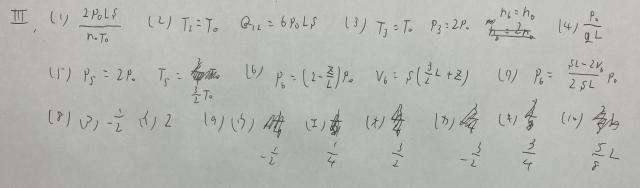 III. (1) 2P₀LS/n₀T₀ (2) T₂=T₀ Q₁₂=6P₀LS (3) T₃=T₀ P₃=2P₀ n₆=n₀ (4) P₀/gL
(5) P₅=2P₀ T₅=3/2 T₀ (6) P₆=(2-z/L)P₀ V₆=S(3/2 L+z) (7) P₆=(5L-2V₆)/2SL P₀
(8) -1/2 2 (9) -1/2 (エ) 1/4 3/2 (カ) -3/2 3/4 (10) 5/8 L